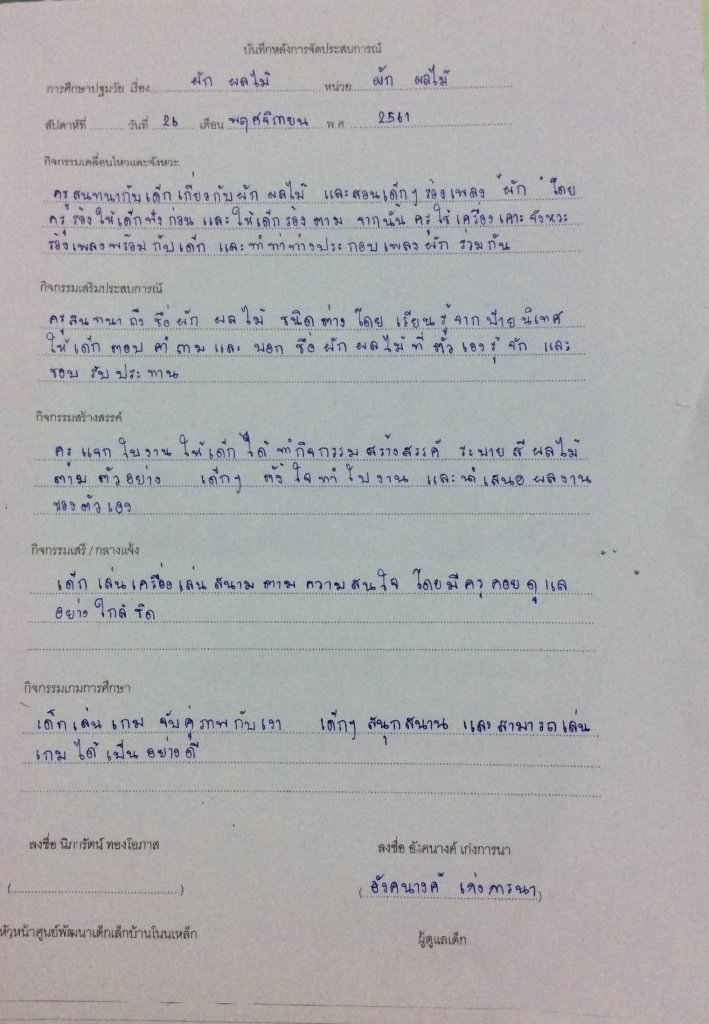 บันทึกหลังการจัดประสบการณ์
การศึกษาปฐมวัย เรื่อง ผัก ผลไม้ หน่วย ผัก ผลไม้
สัปดาห์ที่ ............ วันที่ 26 เดือน พฤศจิกายน พ.ศ. 2561
กิจกรรมเคลื่อนไหวและจังหวะ
ครูสนทนากับเด็กเกี่ยวกับผัก ผลไม้ และสอนเด็กๆ ร้องเพลง "ผัก" โดย
ครูร้องให้เด็กฟังก่อน และให้เด็กร้องตาม จากนั้น ครูใช้เครื่องเคาะจังหวะ
ร้องเพลงพร้อมกับเด็ก และทำท่าทางประกอบเพลงผัก ร่วมกัน
กิจกรรมเสริมประสบการณ์
ครูสนทนาถึงชื่อผัก ผลไม้ ชนิดต่าง โดย เรียนรู้จากป้ายนิเทศ
ให้เด็กตอบคำถามและ บอกชื่อผักผลไม้ที่ตัวเองรู้จัก และ
ชอบรับประทาน
กิจกรรมสร้างสรรค์
ครูแจกใบงานให้เด็กได้ทำกิจกรรมสร้างสรรค์ ระบายสีผลไม้
ตามตัวอย่าง เด็กๆ ตั้งใจทำใบงาน และนำเสนอผลงาน
ของตัวเอง
กิจกรรมเสรี / กลางแจ้ง
เด็กเล่นเครื่องเล่นสนามตามความสนใจ โดยมีครูคอยดูแล
อย่างใกล้ชิด
กิจกรรมเกมการศึกษา
เด็กเล่นเกม จับคู่ภาพกับเงา เด็กๆ สนุกสนาน และสามารถเล่น
เกมได้เป็นอย่างดี
ลงชื่อ นิภารัตน์ ทองโอภาส ลงชื่อ อังคนางค์ เก่งการนา
(............................................) (อังคนางค์ เก่งการนา)
หัวหน้าศูนย์พัฒนาเด็กเล็กบ้านโนนเหล็ก ผู้ดูแลเด็ก